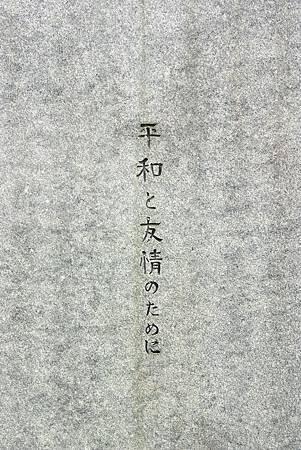 平和と友情のために